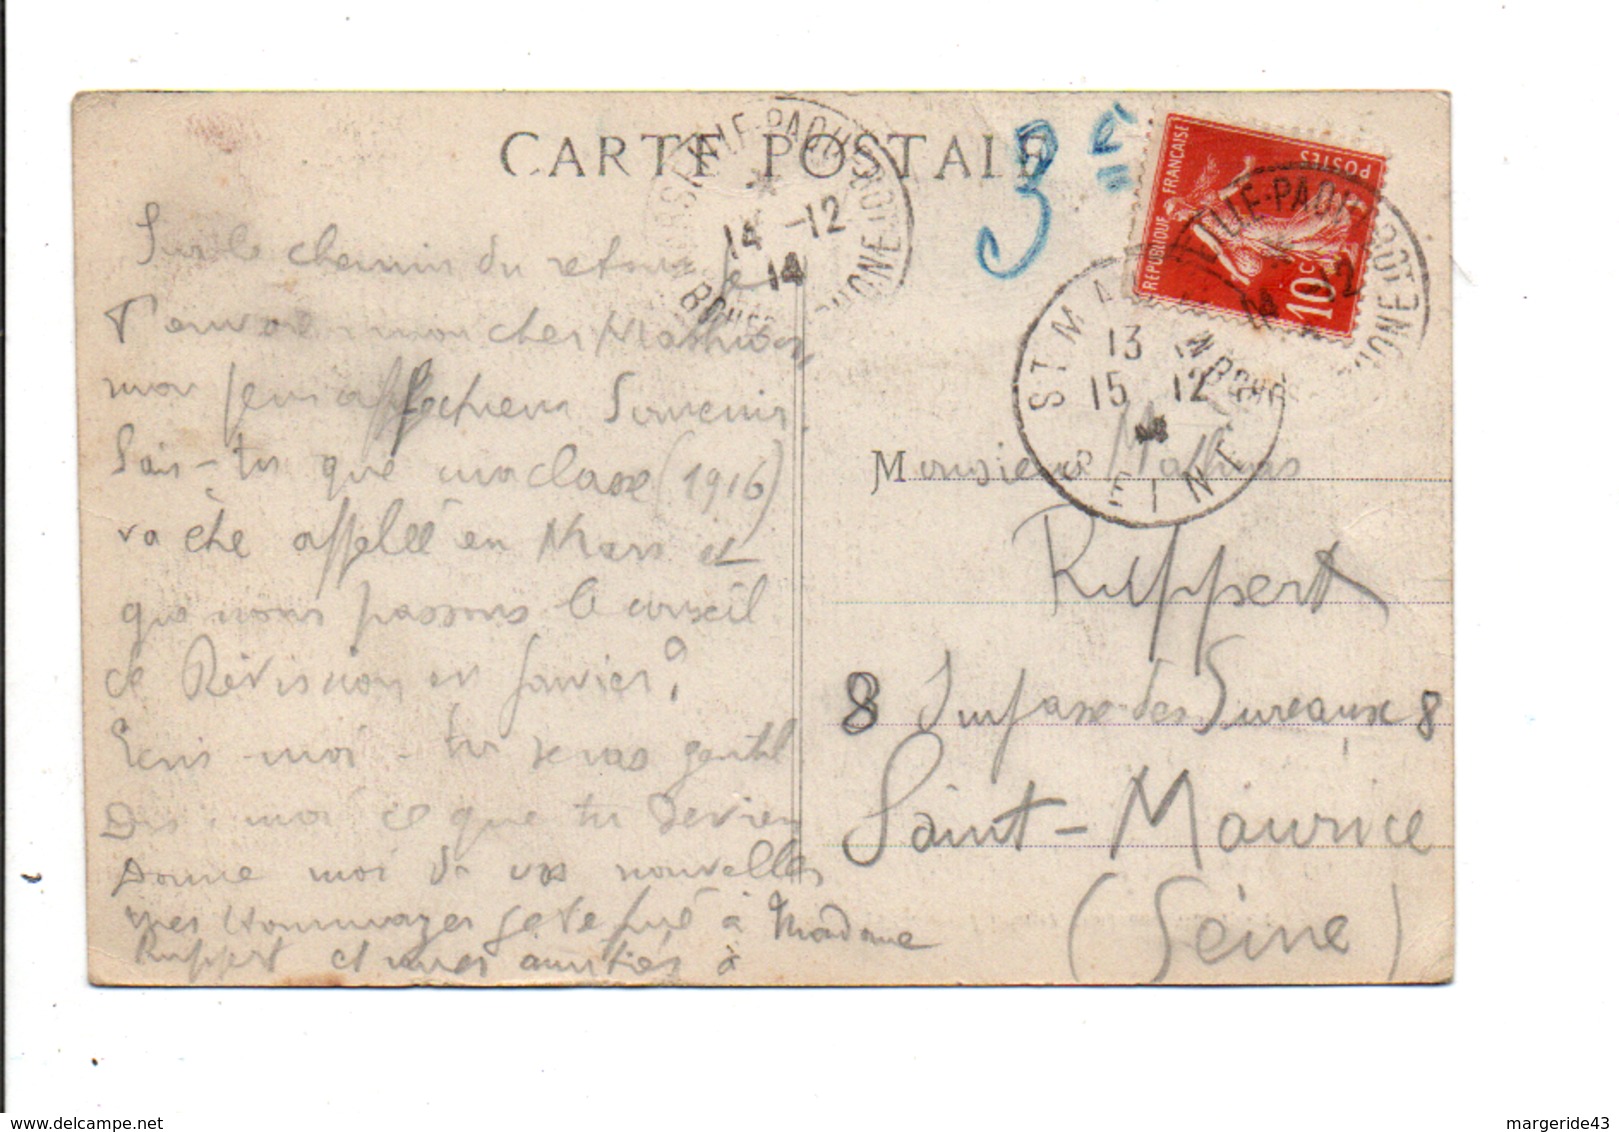 CARTE POSTALE
3 E
MARSEILLE-PAQUEBOT
14 -12
14
BCHES DU RHONE
REPUBLIQUE FRANÇAISE
POSTES
10c
ST MAURICE
13
15 12
SEINE
Sur le chemin du retour je
t'envoie mon cher Mathias,
mon plus affectueux Souvenir.
Sais-tu que ma classe (1916)
va être appelée en Mars et
que nous passons le conseil
de Révision en Janvier ?
Ecris moi - tu seras gentil
Dis-moi ce que tu deviens
Donne moi de vos nouvelles
mes Hommages à Madame
Ruppert et mes amitiés à
Monsieur Mathias
Ruppert
8 Impasse des Sureaux 8
Saint-Maurice
(Seine)
delcampe.net
margeride43